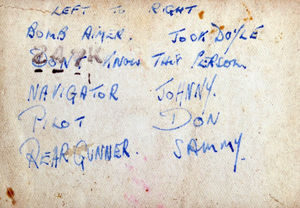 LEFT TO RIGHT
BOMB AIMER. JOCK DOYLE
DON'T KNOW THIS PERSON.
NAVIGATOR JOHNNY.
PILOT DON
REAR GUNNER. SAMMY.